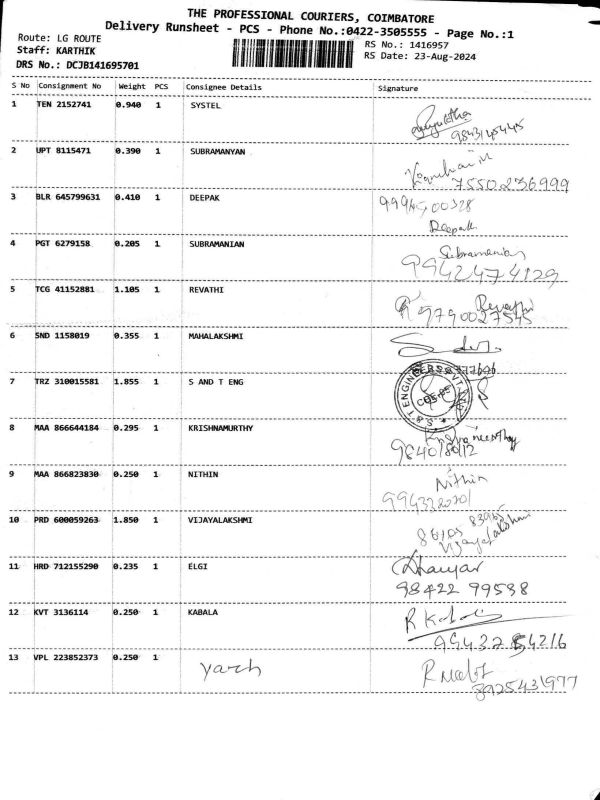 THE PROFESSIONAL COURIERS, COIMBATORE
Delivery Runsheet - PCS - Phone No.:0422-3505555 - Page No.:1
Route: LG ROUTE
RS No.: 1416957
Staff: KARTHIK
RS Date: 23-Aug-2024
DRS No.: DCJB141695701
S No Consignment No Weight PCS Consignee Details Signature
1 TEN 2152741 0.940 1 SYSTEL
2 UPT 8115471 0.390 1 SUBRAMANYAN
7550236999
3 BLR 645799631 0.410 1 DEEPAK
Deepak
4 PGT 6279158 0.205 1 SUBRAMANIAN Subramanian
9942474129
5 TCG 41152881 1.105 1 REVATHI Revathi
9790027545
6 SND 1158019 0.355 1 MAHALAKSHMI
7 TRZ 310015581 1.855 1 S AND T ENG
8 MAA 866644184 0.295 1 KRISHNAMURTHY Krishnamurthy
9840180112
9 MAA 866823830 0.250 1 NITHIN Nithin
10 PRD 600059263 1.850 1 VIJAYALAKSHMI
Vijayalakshmi
11 HRD 712155290 0.235 1 ELGI
98422 99538
12 KVT 3136114 0.250 1 KABALA
13 VPL 223852373 0.250 1 yarch
8925431977